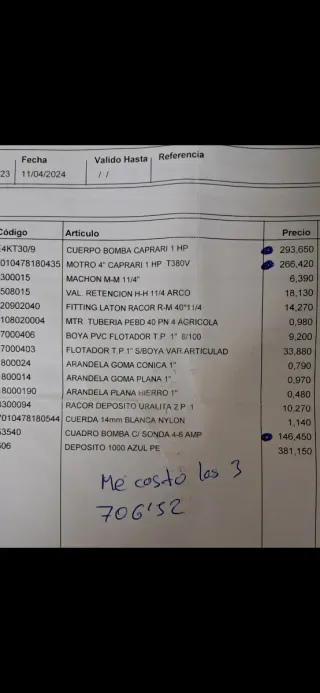 Fecha Valido Hasta Referencia
23 11/04/2024 / /
Código Artículo Precio
E4KT30/9 CUERPO BOMBA CAPRARI 1 HP 293,650
7010478180435 MOTRO 4" CAPRARI 1 HP T380V 266,420
300015 MACHON M-M 11/4" 6,390
508015 VAL. RETENCION H-H 11/4 ARCO 18,130
20902040 FITTING LATON RACOR R-M 40*11/4 14,270
108020004 MTR. TUBERIA PEBD 40 PN 4 AGRICOLA 0,980
7000406 BOYA PVC FLOTADOR T.P 1" 8/100 9,200
7000403 FLOTADOR T.P 1" S/BOYA VAR.ARTICULAD 33,880
800024 ARANDELA GOMA CONICA 1" 0,790
800014 ARANDELA GOMA PLANA 1" 0,970
8000190 ARANDELA PLANA HIERRO 1" 0,480
8300094 RACOR DEPOSITO URALITA 2 P 1 10,270
7010478180544 CUERDA 14mm BLANCA NYLON 1,140
53540 CUADRO BOMBA C/ SONDA 4-6 AMP 146,450
606 DEPOSITO 1000 AZUL PE 381,150
Me costó los 3
706'52